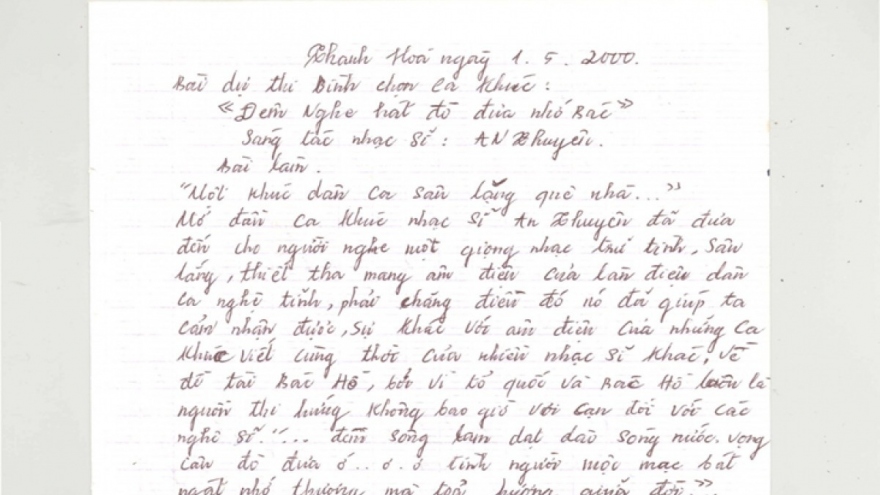 Thanh Hoá ngày 1.5.2000.
Bài dự thi Bình chọn ca khúc:
"Đêm Nghe hát đò đưa nhớ Bác"
Sáng tác nhạc sĩ: AN Thuyên.
Bài làm.
"Một khúc dân ca sâu lặng quê nhà..."
Mở đầu ca khúc nhạc sĩ An Thuyên đã đưa
đến cho người nghe một giọng nhạc trữ tình, sâu
lắng, thiết tha mang âm điệu của làn điệu dân
ca nghệ tĩnh, phải chăng điều đó nó đã giúp ta
cảm nhận được, sự khác với âm điệu của những ca
khúc viết cùng thời của nhiều nhạc sĩ khác, về
đề tài Bác Hồ, bởi vì tổ quốc và Bác Hồ luôn là
nguồn thi hứng không bao giờ vơi cạn đối với các
nghệ sĩ. "... đêm sông lam dạt dào sóng nước. vọng
câu đò đưa ơ.. ơ. ơ tình người mộc mạc bát
ngát nhớ thương mà toả hương giữa đời".